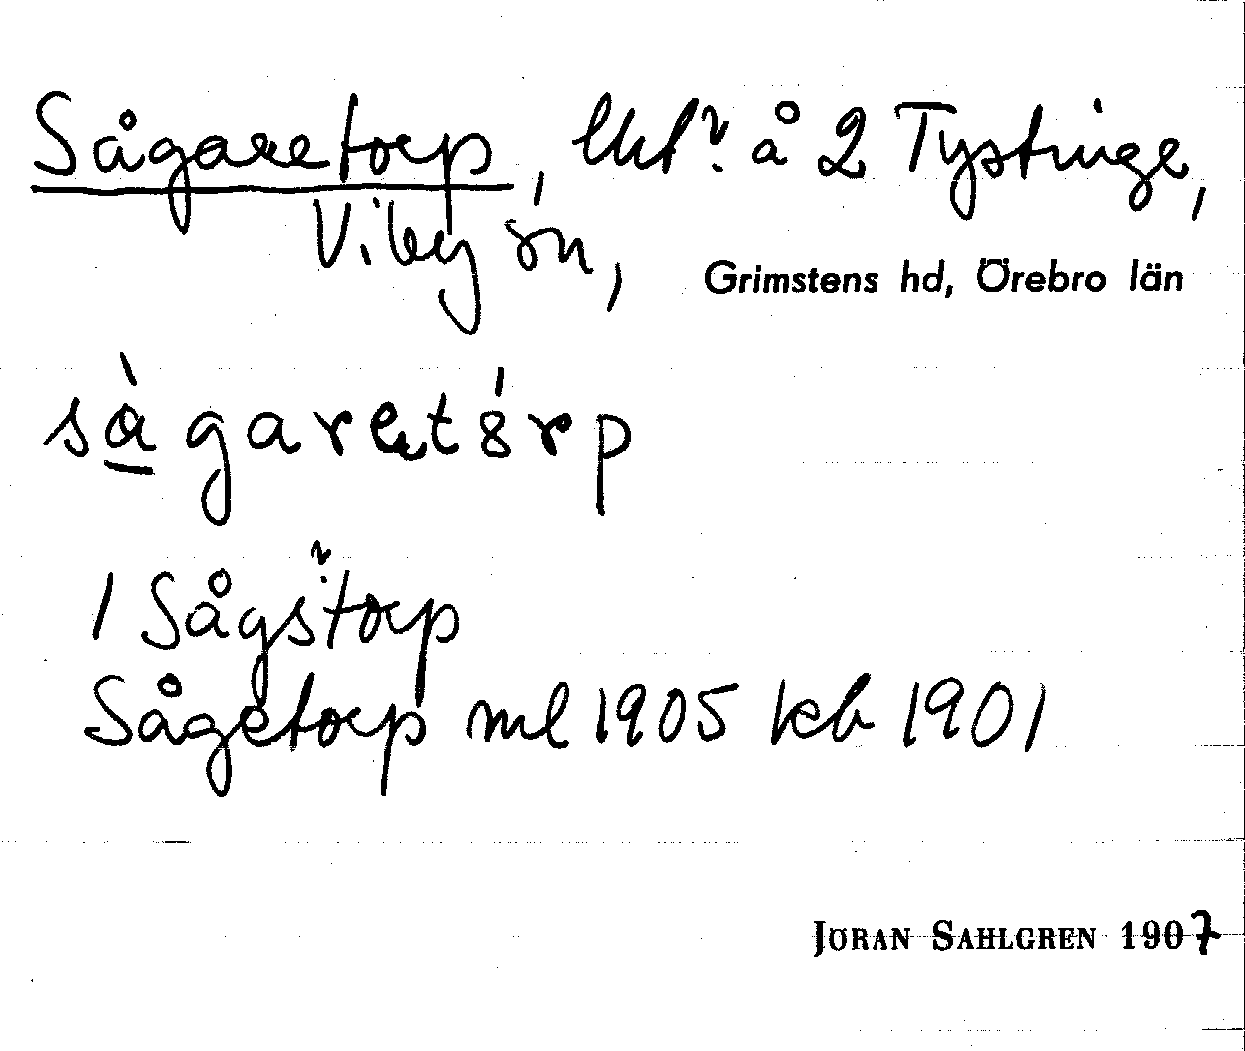 Sågaretorp, lht? å 2 Tystinge,
Viby sn,
Grimstens hd, Örebro län
sàgaretórp
/ Sågs?torp
Sågetorp ml 1905 kb 1901
JÖRAN SAHLGREN 1907